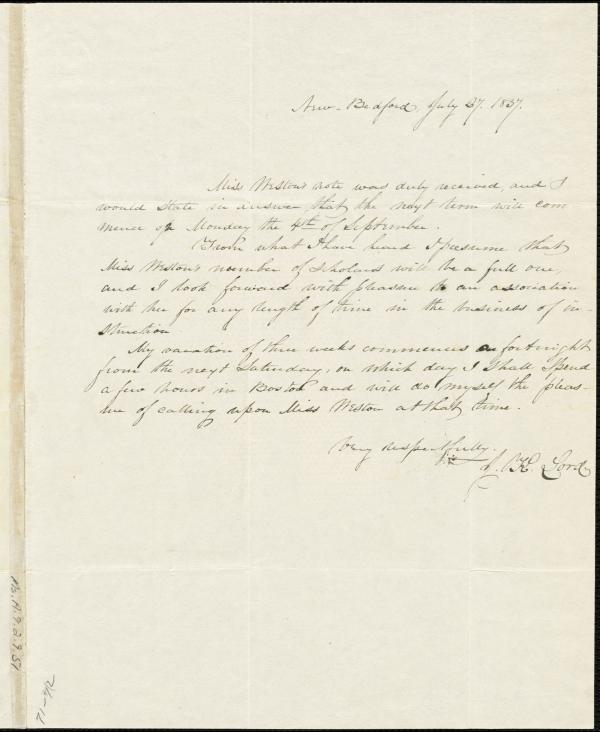 New-Bedford, July 27. 1837.
Miss Weston's note was duly received, and I
would state in answer that the next term will com
mence on Monday the 4th of September.
From what I have heard I presume that
Miss Weston's number of scholars will be a full one,
and I look forward with pleasure to an association
with her for any length of time in the business of in-
struction
My vacation of three weeks commences a fortnight
from the next Saturday, on which day I shall spend
a few hours in Boston and will do myself the pleas-
ure of calling upon Miss Weston at that time.
Very respectfully.
Lord.
Ms. A. 9. 2. 9. 51
71-72